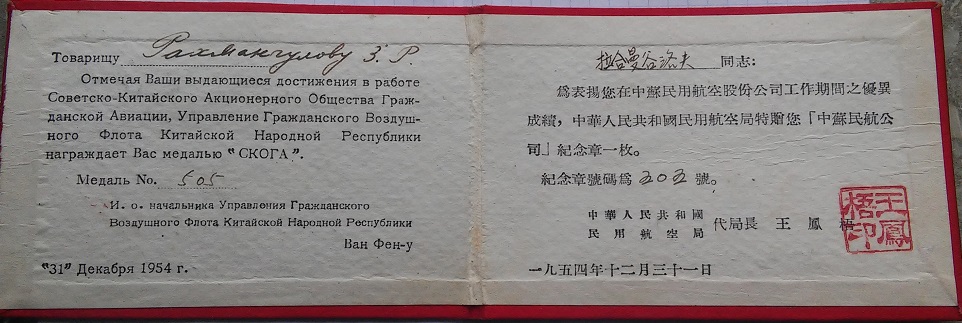 Товарищу Рахмангулову З. Р.
Отмечая Ваши выдающиеся достижения в работе
Советско-Китайского Акционерного Общества Граж-
данской Авиации, Управление Гражданского Воздуш-
ного Флота Китайской Народной Республики
награждает Вас медалью "СКОГА".
Медаль No. 505
И. о. начальника Управления Гражданского
Воздушного Флота Китайской Народной Республики
Ван Фен-у
"31" Декабря 1954 г.
拉合曼谷洛夫 同志:
爲表揚您在中蘇民用航空股份公司工作期間之優異
成績，中華人民共和國民用航空局特贈您「中蘇民航公
司」紀念章一枚。
紀念章號碼爲 505 號。
中華人民共和國
民用航空局 代局長 王鳳梧
王鳳
梧印
一九五四年十二月三十一日